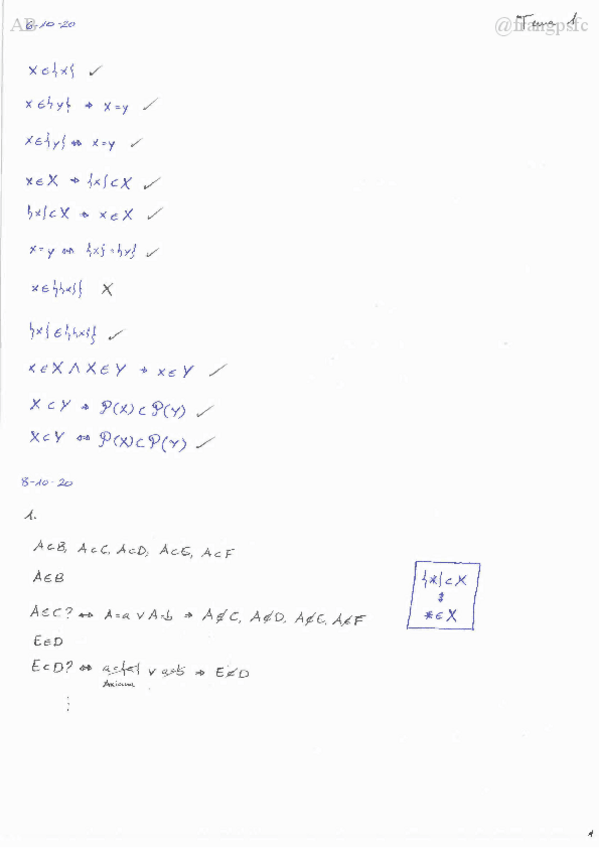 6-10-20 Tema 1
@frangpsfc
x∈{x} ✓
x∈{y} ⇒ x=y ✓
x∈{y} ⇔ x=y ✓
x∈X ⇒ {x}⊂X ✓
{x}⊂X ⇒ x∈X ✓
x=y ⇔ {x}={y} ✓
x∈{{x}} X
{x}∈{{x}} ✓
x∈X ∧ X∈Y ⇒ x∈Y ✓
X⊂Y ⇒ P(X)⊂P(Y) ✓
X⊂Y ⇔ P(X)⊂P(Y) ✓
8-10-20
1.
A⊂B, A⊂C, A⊂D, A⊂E, A⊂F
A∈B
A∈C? ⇔ A=a ∨ A=b ⇒ A∉C, A∉D, A∉E, A∉F
E∈D
E⊂D? ⇔ ∨ ⇒ E⊄D
Axioma
⋮
{*}⊂X
⇕
*∈X
1